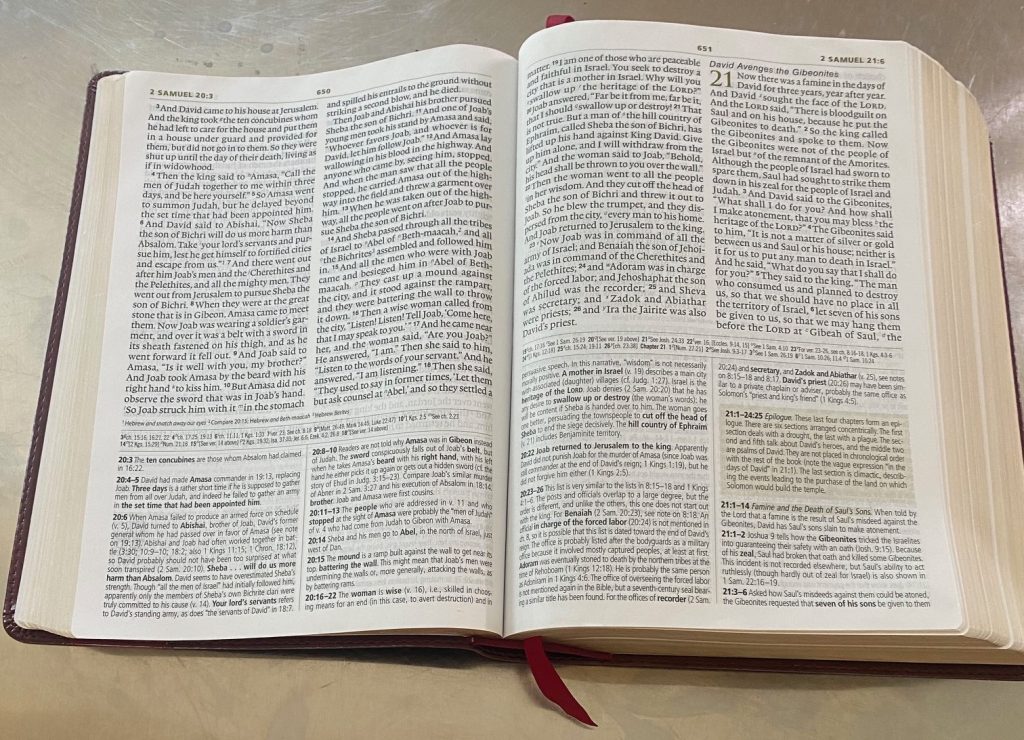 2 SAMUEL 20:3
650
³And David came to his house at Jerusalem.
And the king took the ten concubines whom
he had left to care for the house and put them
in a house under guard and provided for
them, but did not go in to them. So they were
shut up until the day of their death, living as
if in widowhood.
⁴Then the king said to Amasa, "Call the
men of Judah together to me within three
days, and be here yourself." ⁵So Amasa went
to summon Judah, but he delayed beyond
the set time that had been appointed him.
⁶And David said to Abishai, "Now Sheba
the son of Bichri will do us more harm than
Absalom. Take your lord's servants and pur-
sue him, lest he get himself to fortified cities
and escape from us." ⁷And there went out
after him Joab's men and the Cherethites and
the Pelethites, and all the mighty men. They
went out from Jerusalem to pursue Sheba the
son of Bichri. ⁸When they were at the great
stone that is in Gibeon, Amasa came to meet
them. Now Joab was wearing a soldier's gar-
ment, and over it was a belt with a sword in
its sheath fastened on his thigh, and as he
went forward it fell out. ⁹And Joab said to
Amasa, "Is it well with you, my brother?"
And Joab took Amasa by the beard with his
right hand to kiss him. ¹⁰But Amasa did not
observe the sword that was in Joab's hand.
So Joab struck him with it in the stomach
and spilled his entrails to the ground without
striking a second blow, and he died.
Then Joab and Abishai his brother pursued
Sheba the son of Bichri. ¹¹And one of Joab's
young men took his stand by Amasa and said,
"Whoever favors Joab, and whoever is for
David, let him follow Joab." ¹²And Amasa lay
wallowing in his blood in the highway. And
anyone who came by, seeing him, stopped.
And when the man saw that all the people
stopped, he carried Amasa out of the high-
way into the field and threw a garment over
him. ¹³When he was taken out of the high-
way, all the people went on after Joab to pur-
sue Sheba the son of Bichri.
¹⁴And Sheba passed through all the tribes
of Israel to Abel of Beth-maacah, and all
the Bichrites assembled and followed him
in. ¹⁵And all the men who were with Joab
came and besieged him in Abel of Beth-
maacah. They cast up a mound against
the city, and it stood against the rampart,
and they were battering the wall to throw
it down. ¹⁶Then a wise woman called from
the city, "Listen! Listen! Tell Joab, 'Come here,
that I may speak to you.'" ¹⁷And he came near
her, and the woman said, "Are you Joab?"
He answered, "I am." Then she said to him,
"Listen to the words of your servant." And he
answered, "I am listening." ¹⁸Then she said,
"They used to say in former times, 'Let them
but ask counsel at Abel,' and so they settled a
20:3 The ten concubines are those whom Absalom had claimed
in 16:22.
20:4–5 David had made Amasa commander in 19:13, replacing
Joab. Three days is a rather short time if he is supposed to gather
men from all over Judah, and indeed he failed to gather an army
in the set time that had been appointed him.
20:6 When Amasa failed to produce an armed force on schedule
(v. 5), David turned to Abishai, brother of Joab, David's former
general whom he had passed over in favor of Amasa (see note
on 19:13). Abishai and Joab had often worked together in bat-
tle (3:30; 10:9–10; 18:2; also 1 Kings 11:15; 1 Chron. 18:12),
so David probably should not have been too surprised at what
soon transpired (2 Sam. 20:10). Sheba . . . will do us more
harm than Absalom. David seems to have overestimated Sheba's
strength. Though "all the men of Israel" had initially followed him,
apparently only the members of Sheba's own Bichrite clan were
truly committed to his cause (v. 14). Your lord's servants refers
to David's standing army, as does "the servants of David" in 18:7.
20:8–10 Readers are not told why Amasa was in Gibeon instead
of Judah. The sword conspicuously falls out of Joab's belt, but
when he takes Amasa's beard with his right hand, with his left
hand he either picks it up again or gets out a hidden sword (cf. the
story of Ehud in Judg. 3:15–23). Compare Joab's similar murder
of Abner in 2 Sam. 3:27 and his execution of Absalom in 18:14.
brother. Joab and Amasa were first cousins.
20:11–13 The people who are addressed in v. 11 and who
stopped at the sight of Amasa were probably the "men of Judah"
of v. 4 who had come from Judah to Gibeon with Amasa.
20:14 Sheba and his men go to Abel, in the north of Israel, just
west of Dan.
20:15 The mound is a ramp built against the wall to get near its
top. battering the wall. This might mean that Joab's men were
undermining the walls or, more generally, attacking the walls, as
by battering rams.
20:16–22 The woman is wise (v. 16), i.e., skilled in choos-
ing means for an end (in this case, to avert destruction) and in
651
2 SAMUEL 21:6
matter. ¹⁹I am one of those who are peaceable
and faithful in Israel. You seek to destroy a
city that is a mother in Israel. Why will you
swallow up the heritage of the LORD?"
Joab answered, "Far be it from me, far be it,
that I should swallow up or destroy! ²¹That
is not true. But a man of the hill country of
Ephraim, called Sheba the son of Bichri, has
lifted up his hand against King David. Give
up him alone, and I will withdraw from the
city." And the woman said to Joab, "Behold,
his head shall be thrown to you over the wall."
²²Then the woman went to all the people
in her wisdom. And they cut off the head of
Sheba the son of Bichri and threw it out to
Joab. So he blew the trumpet, and they dis-
persed from the city, every man to his home.
And Joab returned to Jerusalem to the king.
²³Now Joab was in command of all the
army of Israel; and Benaiah the son of Jehoi-
ada was in command of the Cherethites and
the Pelethites; ²⁴and Adoram was in charge
of the forced labor; and Jehoshaphat the son
of Ahilud was the recorder; ²⁵and Sheva
was secretary; and Zadok and Abiathar
were priests; ²⁶and Ira the Jairite was also
David's priest.
David Avenges the Gibeonites
21 Now there was a famine in the days of
David for three years, year after year.
And David sought the face of the LORD.
And the LORD said, "There is bloodguilt on
Saul and on his house, because he put the
Gibeonites to death." ²So the king called
the Gibeonites and spoke to them. Now
the Gibeonites were not of the people of
Israel but of the remnant of the Amorites.
Although the people of Israel had sworn to
spare them, Saul had sought to strike them
down in his zeal for the people of Israel and
Judah. ³And David said to the Gibeonites,
"What shall I do for you? And how shall
I make atonement, that you may bless the
heritage of the LORD?" ⁴The Gibeonites said
to him, "It is not a matter of silver or gold
between us and Saul or his house; neither is
it for us to put any man to death in Israel."
And he said, "What do you say that I shall do
for you?" ⁵They said to the king, "The man
who consumed us and planned to destroy
us, so that we should have no place in all
the territory of Israel, ⁶let seven of his sons
be given to us, so that we may hang them
before the LORD at Gibeah of Saul, the
persuasive speech. In this narrative, "wisdom" is not necessarily
morally positive. A mother in Israel (v. 19) describes a main city
with associated (daughter) villages (cf. Judg. 1:27). Israel is the
heritage of the LORD. Joab denies (2 Sam. 20:20) that he has
any desire to swallow up or destroy (the woman's words); he
will be content if Sheba is handed over to him. The woman goes
one better, persuading the townspeople to cut off the head of
Sheba to end the siege decisively. The hill country of Ephraim
(v. 21) includes Benjaminite territory.
20:22 Joab returned to Jerusalem to the king. Apparently
David did not punish Joab for the murder of Amasa (since Joab was
still commander at the end of David's reign; 1 Kings 1:19), but he
did not forgive him either (1 Kings 2:5).
20:23–26 This list is very similar to the lists in 8:15–18 and 1 Kings
4:1–6. The posts and officials overlap to a large degree, but the
order is different, and unlike the others, this one does not start out
with the king. For Benaiah (2 Sam. 20:23), see note on 8:18: An
official in charge of the forced labor (20:24) is not mentioned in
ch. 8, so it is possible that this list is dated toward the end of David's
reign. The office is probably listed after the bodyguards as a military
office because it involved mostly captured peoples, at least at first.
Adoram was eventually stoned to death by the northern tribes at the
time of Rehoboam (1 Kings 12:18). He is probably the same person
as Adoniram in 1 Kings 4:6. The office of overseeing the forced labor
is not mentioned again in the Bible, but a seventh-century seal bear-
ing a similar title has been found. For the offices of recorder (2 Sam.
20:24) and secretary, and Zadok and Abiathar (v. 25), see notes
on 8:15–18 and 8:17. David's priest (20:26) may have been sim-
ilar to a private chaplain or adviser, probably the same office as
Solomon's "priest and king's friend" (1 Kings 4:5).
21:1–24:25 Epilogue. These last four chapters form an epi-
logue. There are six sections arranged concentrically. The first
section deals with a drought, the last with a plague. The sec-
ond and fifth talk about David's heroes, and the middle two
are psalms of David. They are not placed in chronological order
with the rest of the book (note the vague expression "in the
days of David" in 21:1). The last section is climactic, describ-
ing the events leading to the purchase of the land on which
Solomon would build the temple.
21:1–14 Famine and the Death of Saul's Sons. When told by
the Lord that a famine is the result of Saul's misdeed against the
Gibeonites, David has Saul's sons slain to make atonement.
21:1–2 Joshua 9 tells how the Gibeonites tricked the Israelites
into guaranteeing their safety with an oath (Josh. 9:15). Because
of his zeal, Saul had broken that oath and killed some Gibeonites.
This incident is not recorded elsewhere, but Saul's ability to act
ruthlessly (though hardly out of zeal for Israel) is also shown in
1 Sam. 22:16–19.
21:3–6 Asked how Saul's misdeeds against them could be atoned,
the Gibeonites requested that seven of his sons be given to them